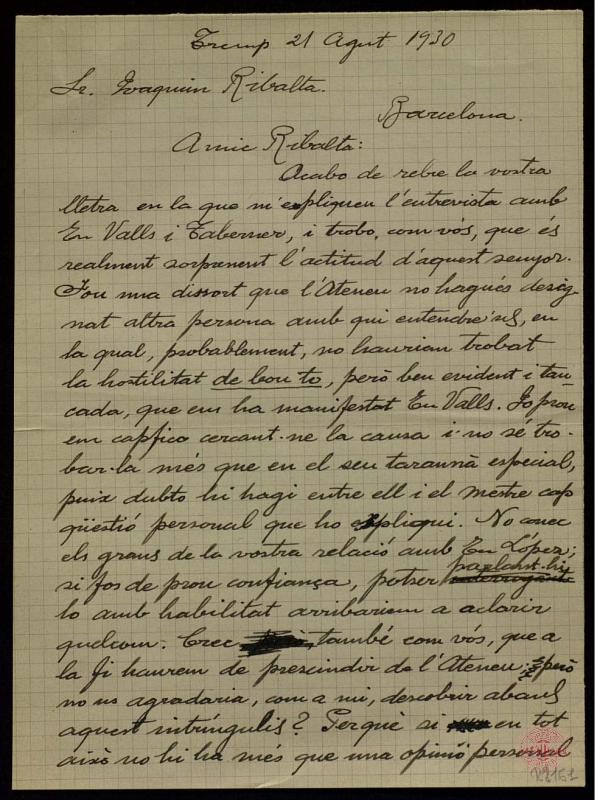 Tremp 21 Agost 1930
Sr. Joaquim Ribalta.
Barcelona.
Amic Ribalta:
Acabo de rebre la vostra
lletra en la que m'expliqueu l'entrevista amb
En Valls i Taberner, i trobo, com vós, que és
realment sorprenent l'actitud d'aquest senyor.
Fou una dissort que l'Ateneu no hagués desig-
nat altra persona amb qui entendre'ns, en
la qual, probablement, no hauriam trobat
la hostilitat de bon to, però ben evident i tan-
cada, que ens ha manifestat En Valls. Jo prou
em capfico cercant-ne la causa i no sé tro-
bar-la més que en el seu tarannà especial,
puix dubto hi hagi entre ell i el mestre cap
qüestió personal que ho expliqui. No conec
els graus de la vostra relació amb En López;
si fos de prou confiança, potser parlant-hi
lo amb habilitat arribariem a aclarir
quelcom. Crec també com vós, que a
la fi haurem de prescindir de l'Ateneu; però
no us agradaria, com a mi, descobrir abans
aquest intríngulis? Perquè si en tot
això no hi ha més que una opinió personal